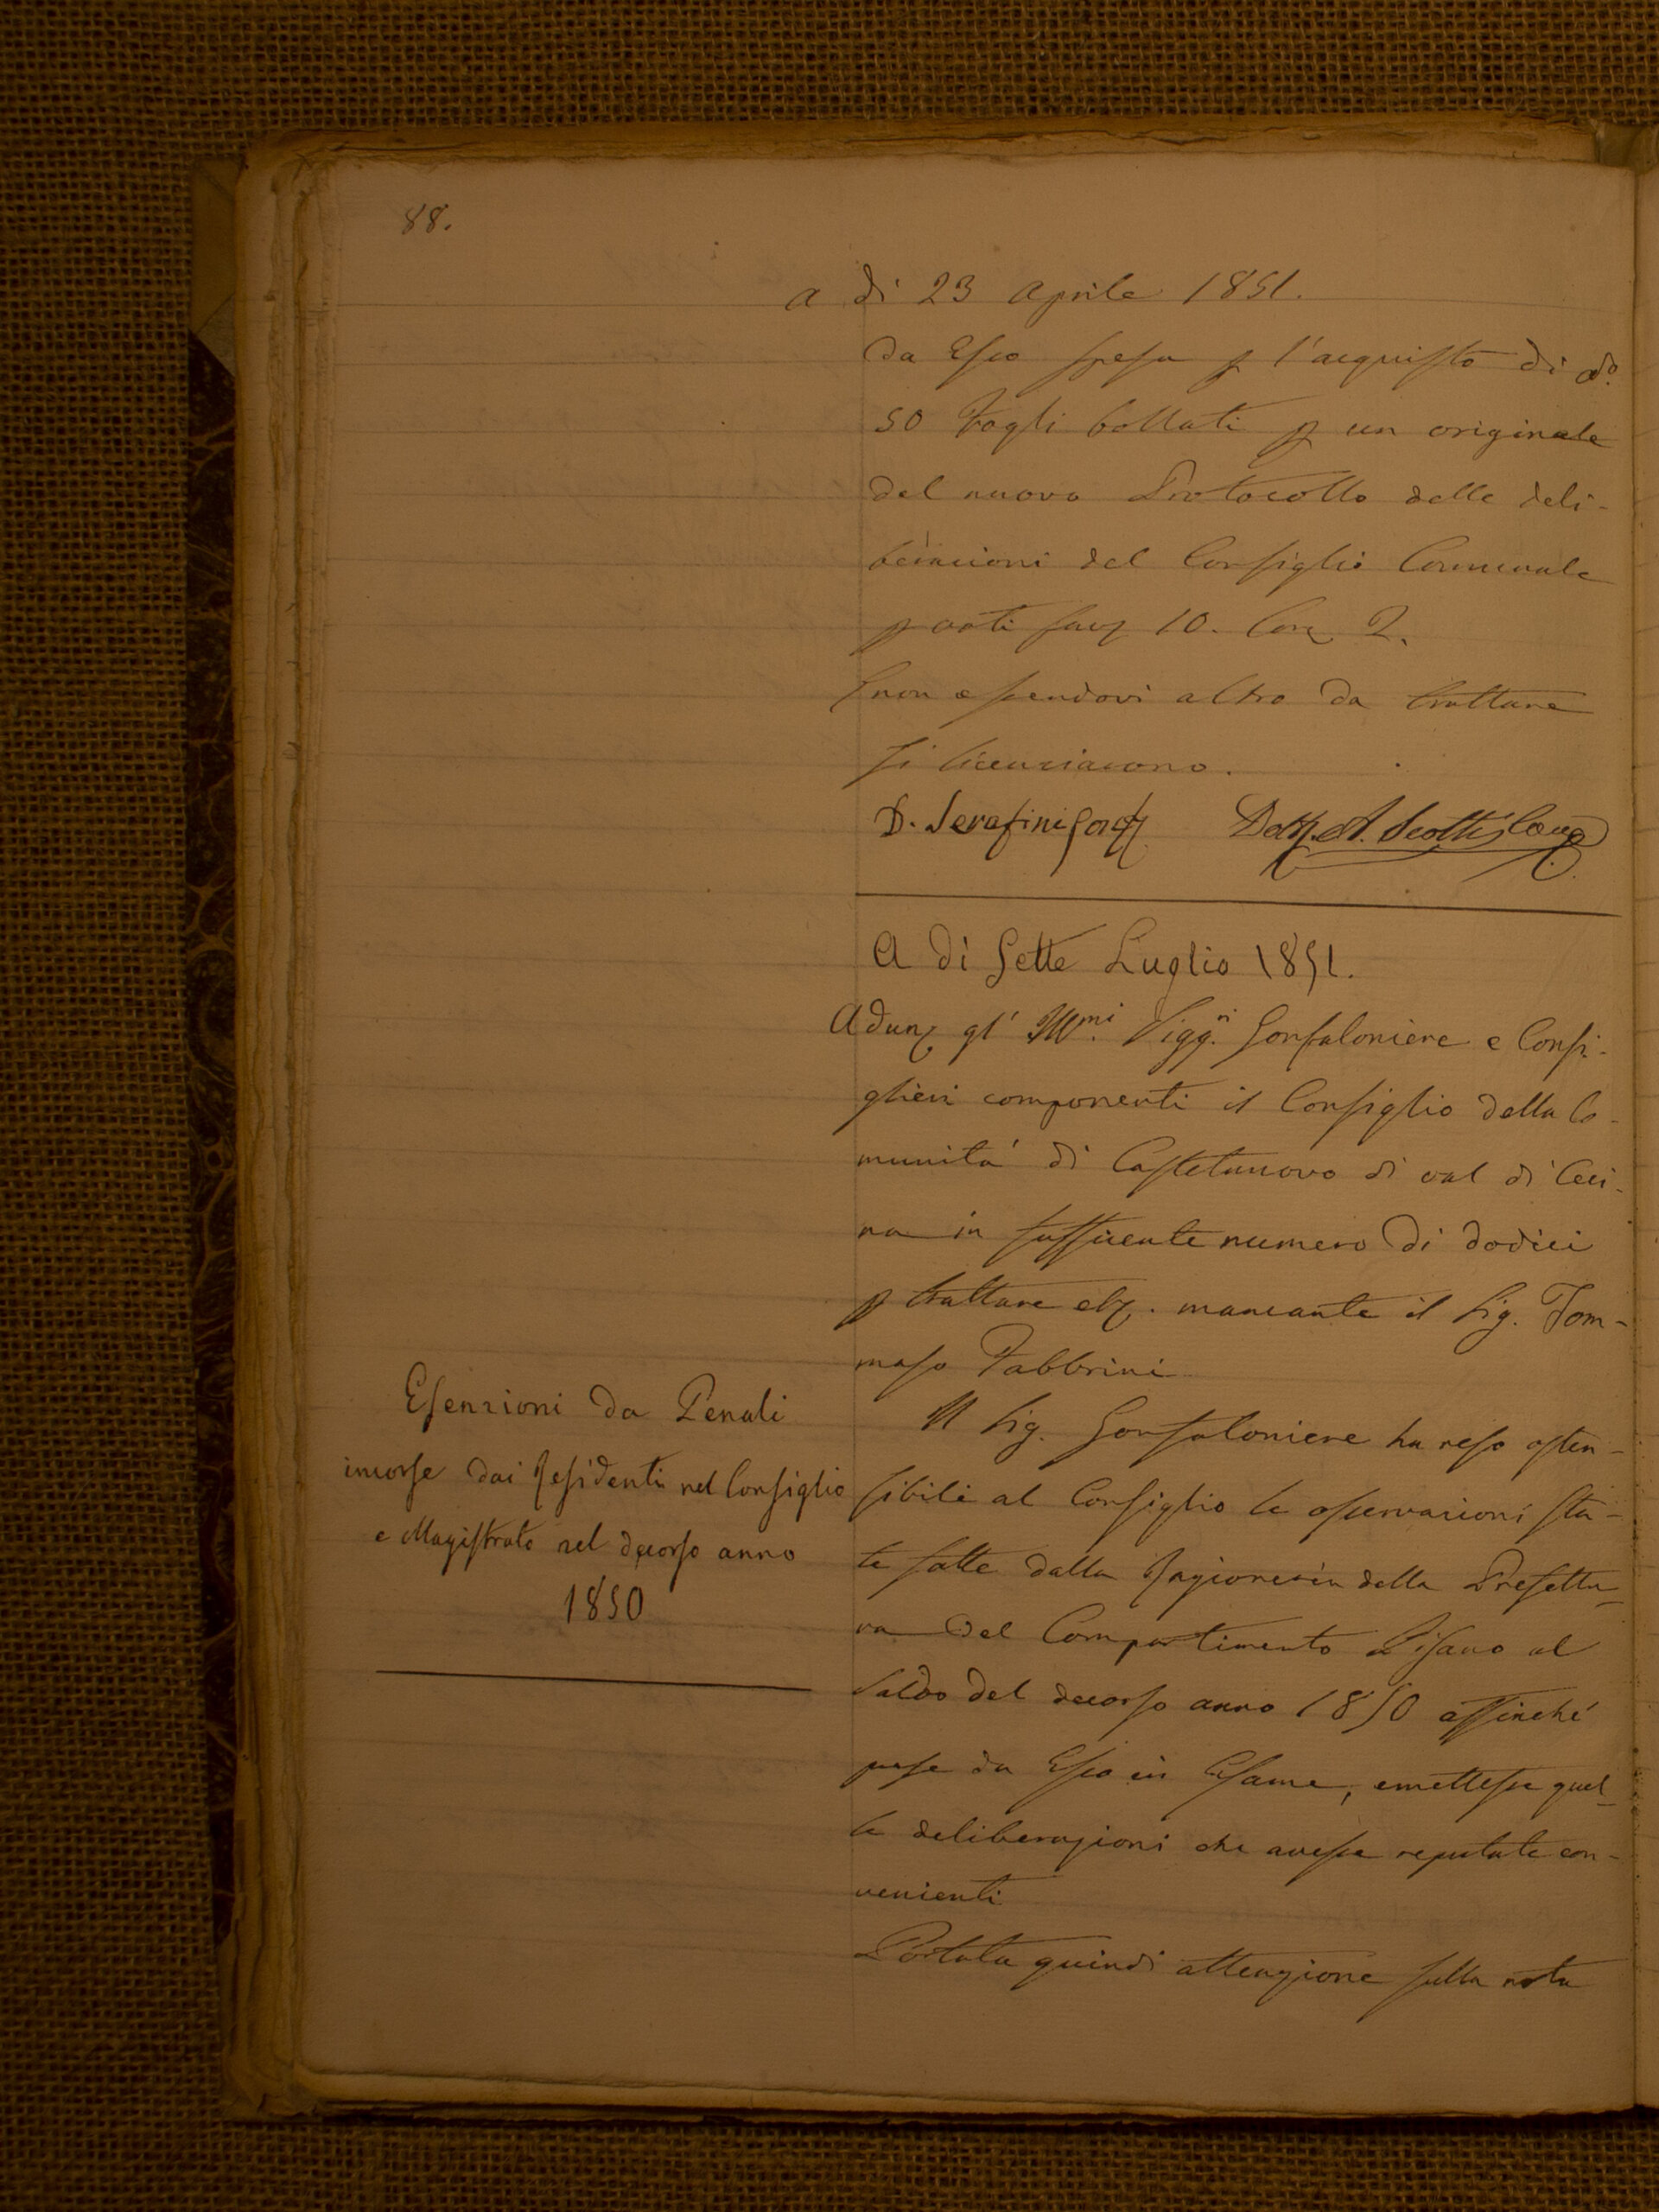 88.
a di 23 Aprile 1851.
da Esso spesa p l'acquisto di
50 Fogli bollati p un originale
del nuovo Protocollo delle deli-
berazioni del Consiglio Comunale
p voti fav 10. Con 2.
non essendovi altro da trattare
si licenziarono.
D. Serafini Gonf Dott. A. Scotti Canc
A dì Sette Luglio 1851.
Adun gl' Ill.mi Sigg.ri Gonfaloniere e Consi-
glieri componenti il Consiglio della Co-
munitá di Castelnuovo di val di Ceci-
na in sufficiente numero di dodici
p trattare . mancante il Sig. Tom-
maso Fabbrini
Esenzioni da Penali
incorse dai Residenti nel Consiglio
e Magistrato nel decorso anno
1850
Il Sig. Gonfaloniere ha reso osten-
sibili al Consiglio le osservazioni sta-
te fatte dalla Ragioneria della Prefettu-
ra del Compartimento Pisano al
Saldo del decorso anno 1850 affinché
prese da Esso in Esame, emettesse quel-
le deliberazioni che avesse reputate con-
venienti
Portata quindi attenzione sulla nota